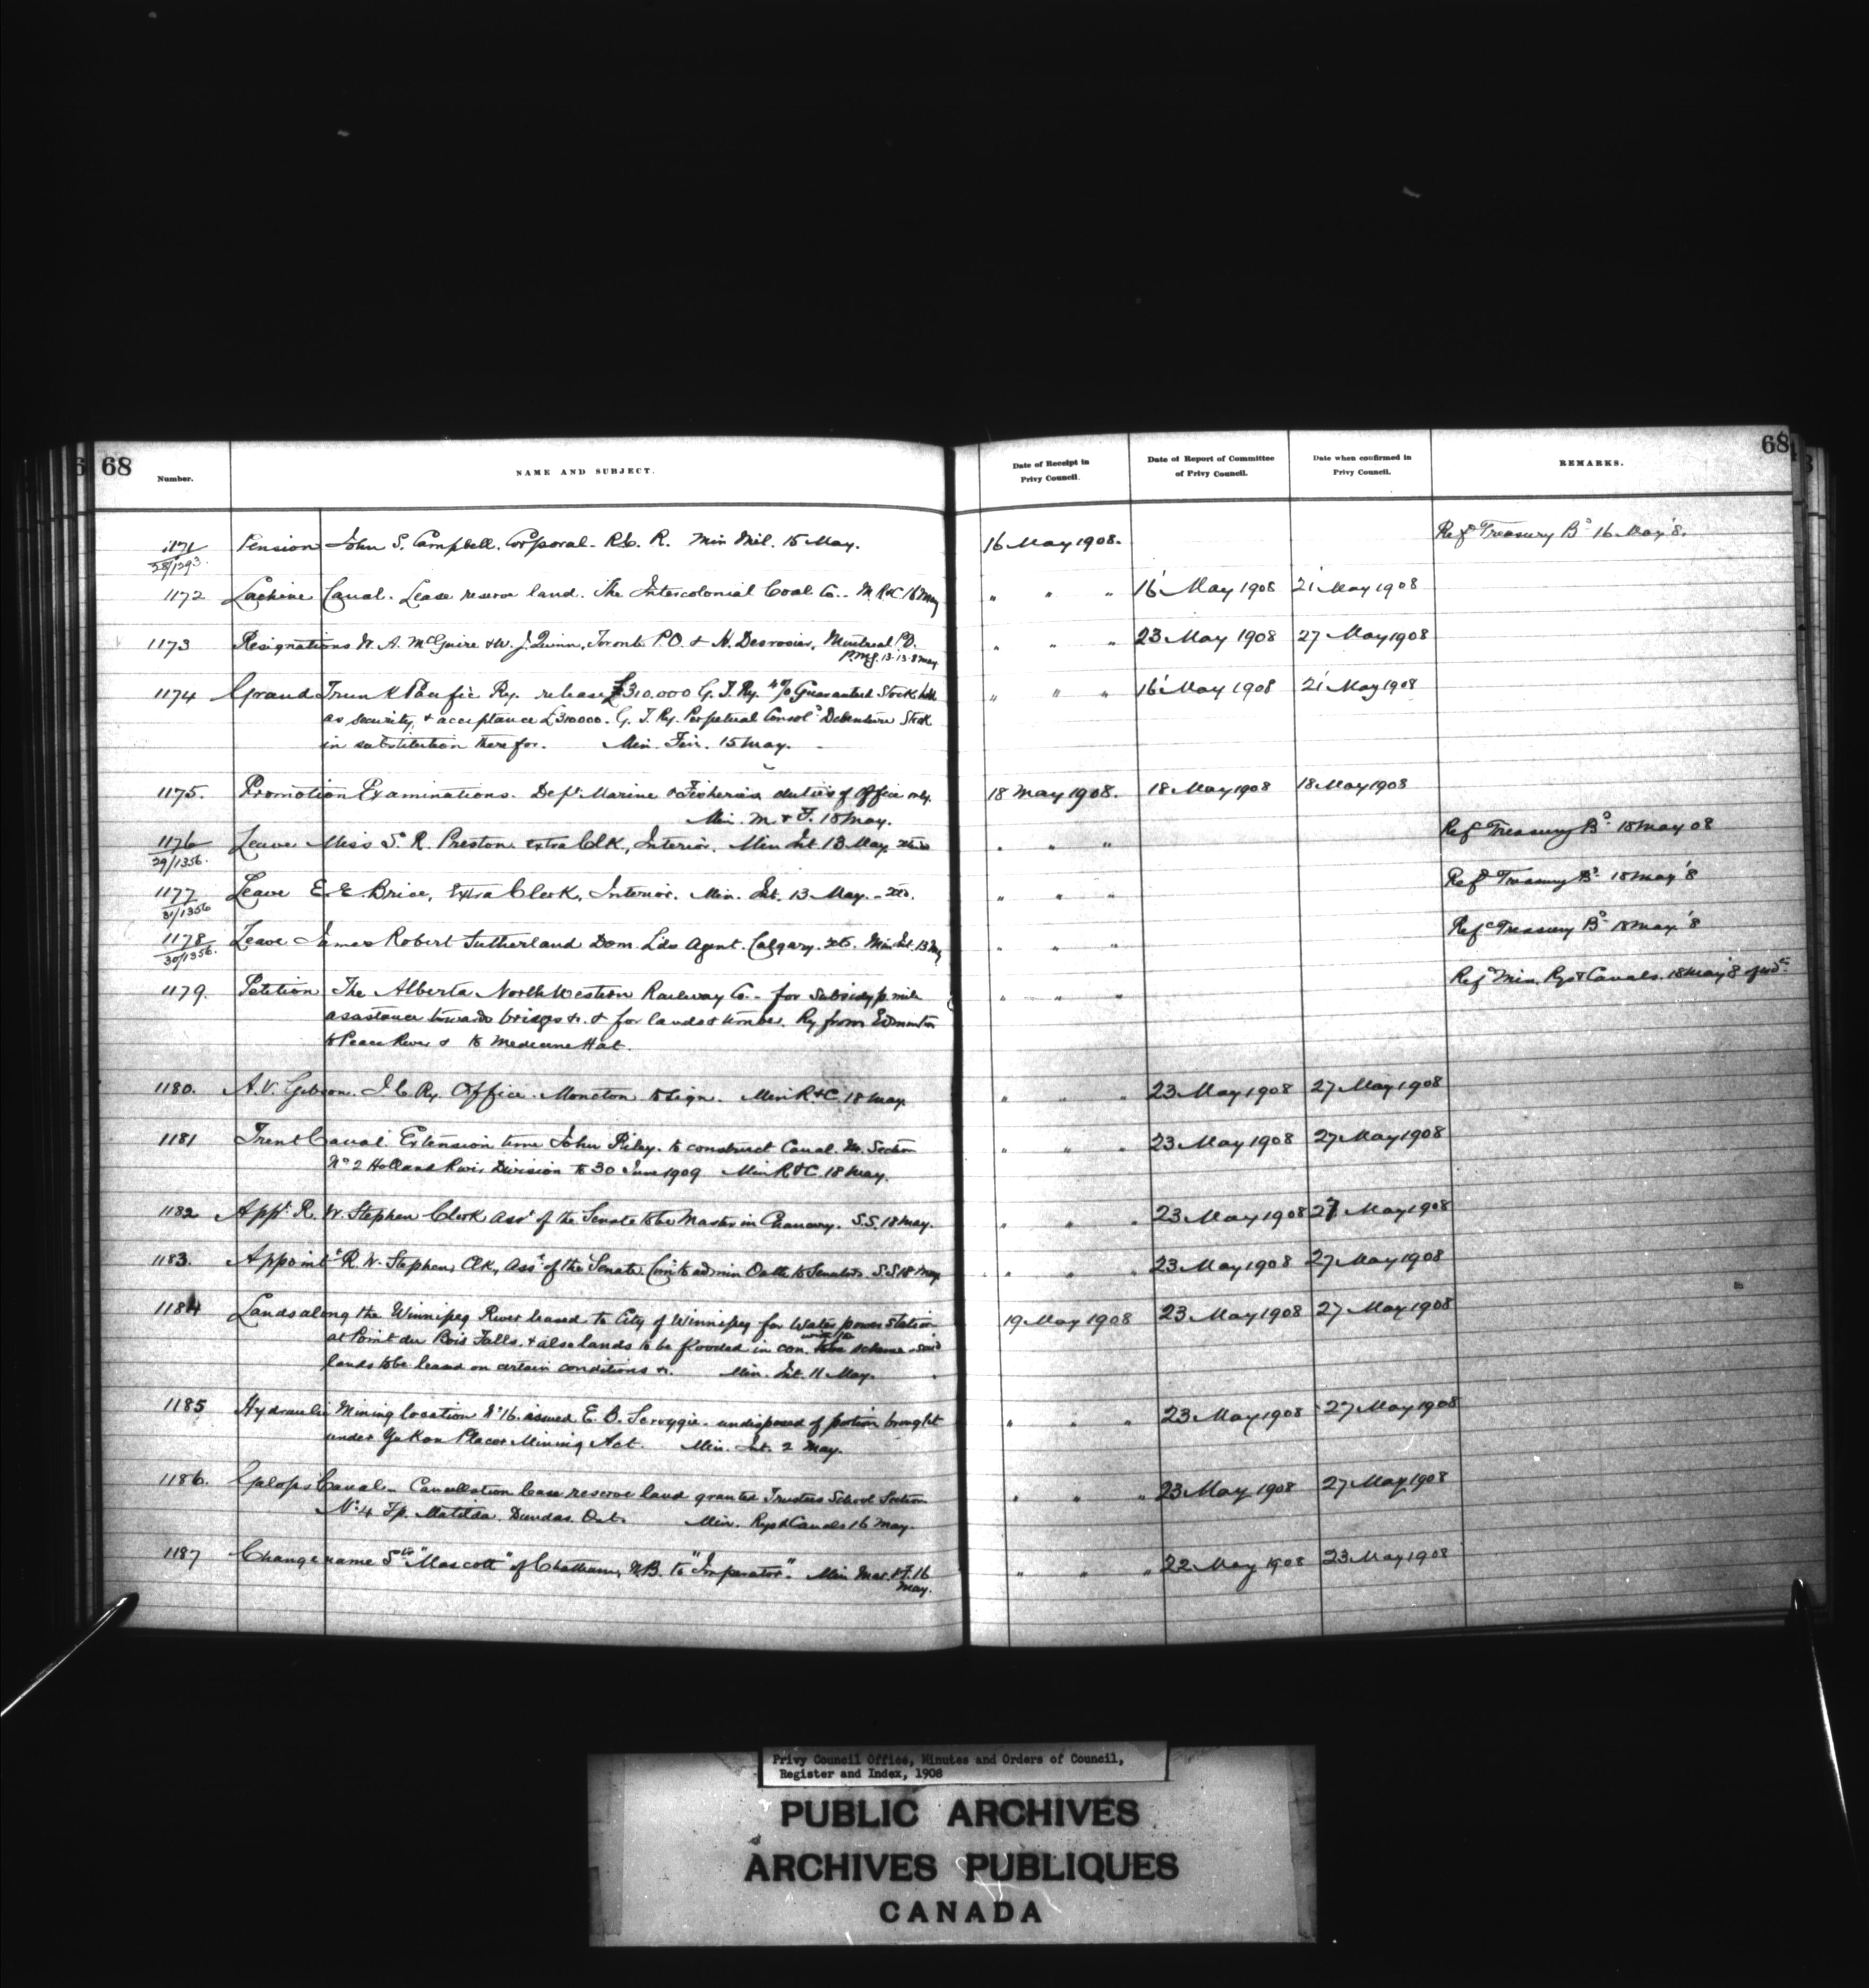 68
68
Number.
NAME AND SUBJECT.
Date of Receipt in Privy Council.
Date of Report of Committee of Privy Council.
Date when confirmed in Privy Council.
REMARKS.
1171 Pension John S. Campbell. Corporal. R.C. R. Min Mil. 15 May. 16 May 1908. Refd Treasury Bd 16 May '8.
28/1293.
1172 Lachine Canal. Lease reserve land. The Intercolonial Coal Co.. M. R&C 16 May " " " 16 May 1908 21 May 1908
1173 Resignations W. A. McGuire & W. J. Quinn, Toronto P.O. & H. Desrosier, Montreal P.O. " " " 23 May 1908 27 May 1908
P.M.G. 13. 13. 8 May
1174 Grand Trunk Pacific Ry. release £310.000 G. T. Ry. 4% Guaranteed Stock held " " " 16 May 1908 21 May 1908
as security, & acceptance £310000. G. T. Ry. Perpetual Consold Debenture Stock
in substitution therefor. Min. Fin. 15 May.
1175. Promotion Examinations. Dept Marine & Fisheries duties of Office only. 18 May 1908. 18 May 1908 18 May 1908
Min. M. & F. 18 May.
1176 Leave Miss S. R. Preston extra Clk, Interior. Min Int. 13 May " " " Refd Treasury Bd 18 May 08
29/1356.
1177 Leave E. E. Brice, Extra Clerk, Interior. Min. Int. 13 May. " " " Refd Treasury Bd 18 May '8
31/1356
1178 Leave James Robert Sutherland Dom. Lds Agent. Calgary. Min Int. 13 May " " " Refd Treasury Bd 18 May '8
30/1356.
1179. Petition The Alberta North Western Railway Co. for Subsidy p. mile " " " Refd Min. Rys & Canals. 18 May '8
assistance towards bridges &c. & for lands & timber. Ry from Edmonton
to Peace River & to Medicine Hat.
1180. A. V. Gibson. I. C. Ry. Office. Moncton to sign. Min R.&C. 18 May. " " " 23 May 1908 27 May 1908
1181 Trent Canal. Extension time John Riley. to construct Canal. Section " " " 23 May 1908 27 May 1908
No 2 Holland River Division to 30 June 1909 Min R&C. 18 May.
1182 Appt R. W. Stephen Clerk Asst of the Senate to be Master in Chancery. S.S. 18 May. " " " 23 May 1908 27 May 1908
1183. Appointt R. W. Stephen, Clk, Asst of the Senate Comr to admin Oath to Senators. S.S 18 May " " " 23 May 1908 27 May 1908
1184 Lands along the Winnipeg River leased to City of Winnipeg for Water power station 19 May 1908 23 May 1908 27 May 1908
at Point du Bois Falls. & also lands to be flooded in con. with the scheme said
lands to be leased on certain conditions &c. Min. Int. 11 May.
1185 Hydraulic Mining location No 16. issued E. B. Scroggie. undisposed of portion brought " " " 23 May 1908 27 May 1908
under Yukon Placer Mining Act. Min. Int. 2 May.
1186. Galops Canal. Cancellation lease reserve land granted Trustees School Section " " " 23 May 1908 27 May 1908
No 4 Tp. Matilda. Dundas. Ont. Min. Rys & Canals 16 May.
1187 Change name Str "Mascott" of Chatham, N.B. to "Imperator". Min Mar. & F. 16 " " " 22 May 1908 23 May 1908
May.
Privy Council Office, Minutes and Orders of Council,
Register and Index, 1908
PUBLIC ARCHIVES
ARCHIVES PUBLIQUES
CANADA